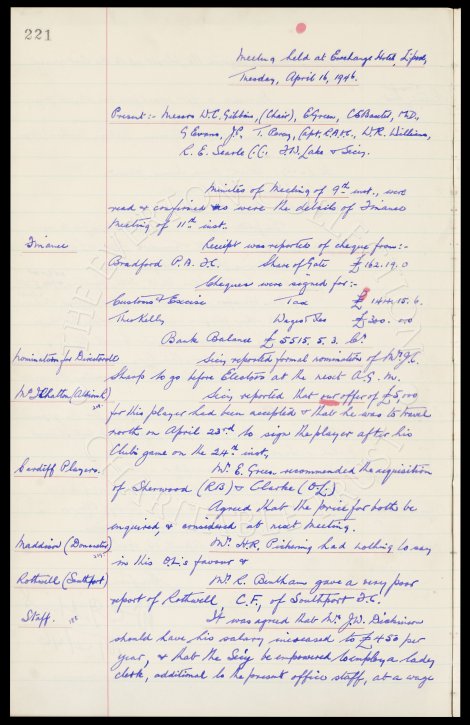 221
Meeting held at Exchange Hotel, Lipool,
Tuesday, April 16, 1946.
Present :- Messrs W.C. Gibbins, (Chair), E Green, C S Baxter, M.D.,
G Evans, J.P. T. Percy, Capt. R.A.M.C., W.R. Williams,
R. E. Searle C.C. & Secy.
Minutes of Meeting of 9th inst., were
read & confirmed as were the details of Finance
Meeting of 11th inst.
Finance Receipt was reported of cheque from:-
Bradford P.A. F.C. Share of Gate £ 162. 19. 0
Cheques were signed for:-
Customs & Excise Tax £ 1444. 15. 6.
Theo Kelly Wages & Fees £ 300. 0. 0
Bank Balance £ 5515. 5. 3. Cr.
Nomination for Directorate Secy reported formal nomination of Mr
Sharp to go before Electors at the next A.G.M.
Mc Ilhatton (Albion R) Secy reported that our offer of £5,000
for this player had been accepted & that he was to travel
north on April 23rd to sign the player after his
Club's game on the 24th inst.
Cardiff Players. Mr. E. Green recommended the acquisition
of Sherwood (R.B) & Clarke (O.L.)
Agreed that the price for both be
enquired, & considered at next Meeting.
Maddison (Doncaster) Mr. H.R. Pickering had nothing to say
in this O.L's favour &
Rothwell (Southport) Mr. R. Bentham gave a very poor
report of Rothwell, C.F., of Southport F.C.
Staff. It was agreed that Mr J.W. Dickinson
should have his salary increased to £450 per
year, & that the Secy be empowered to employ a lady
clerk, additional to the present office staff, at a wage